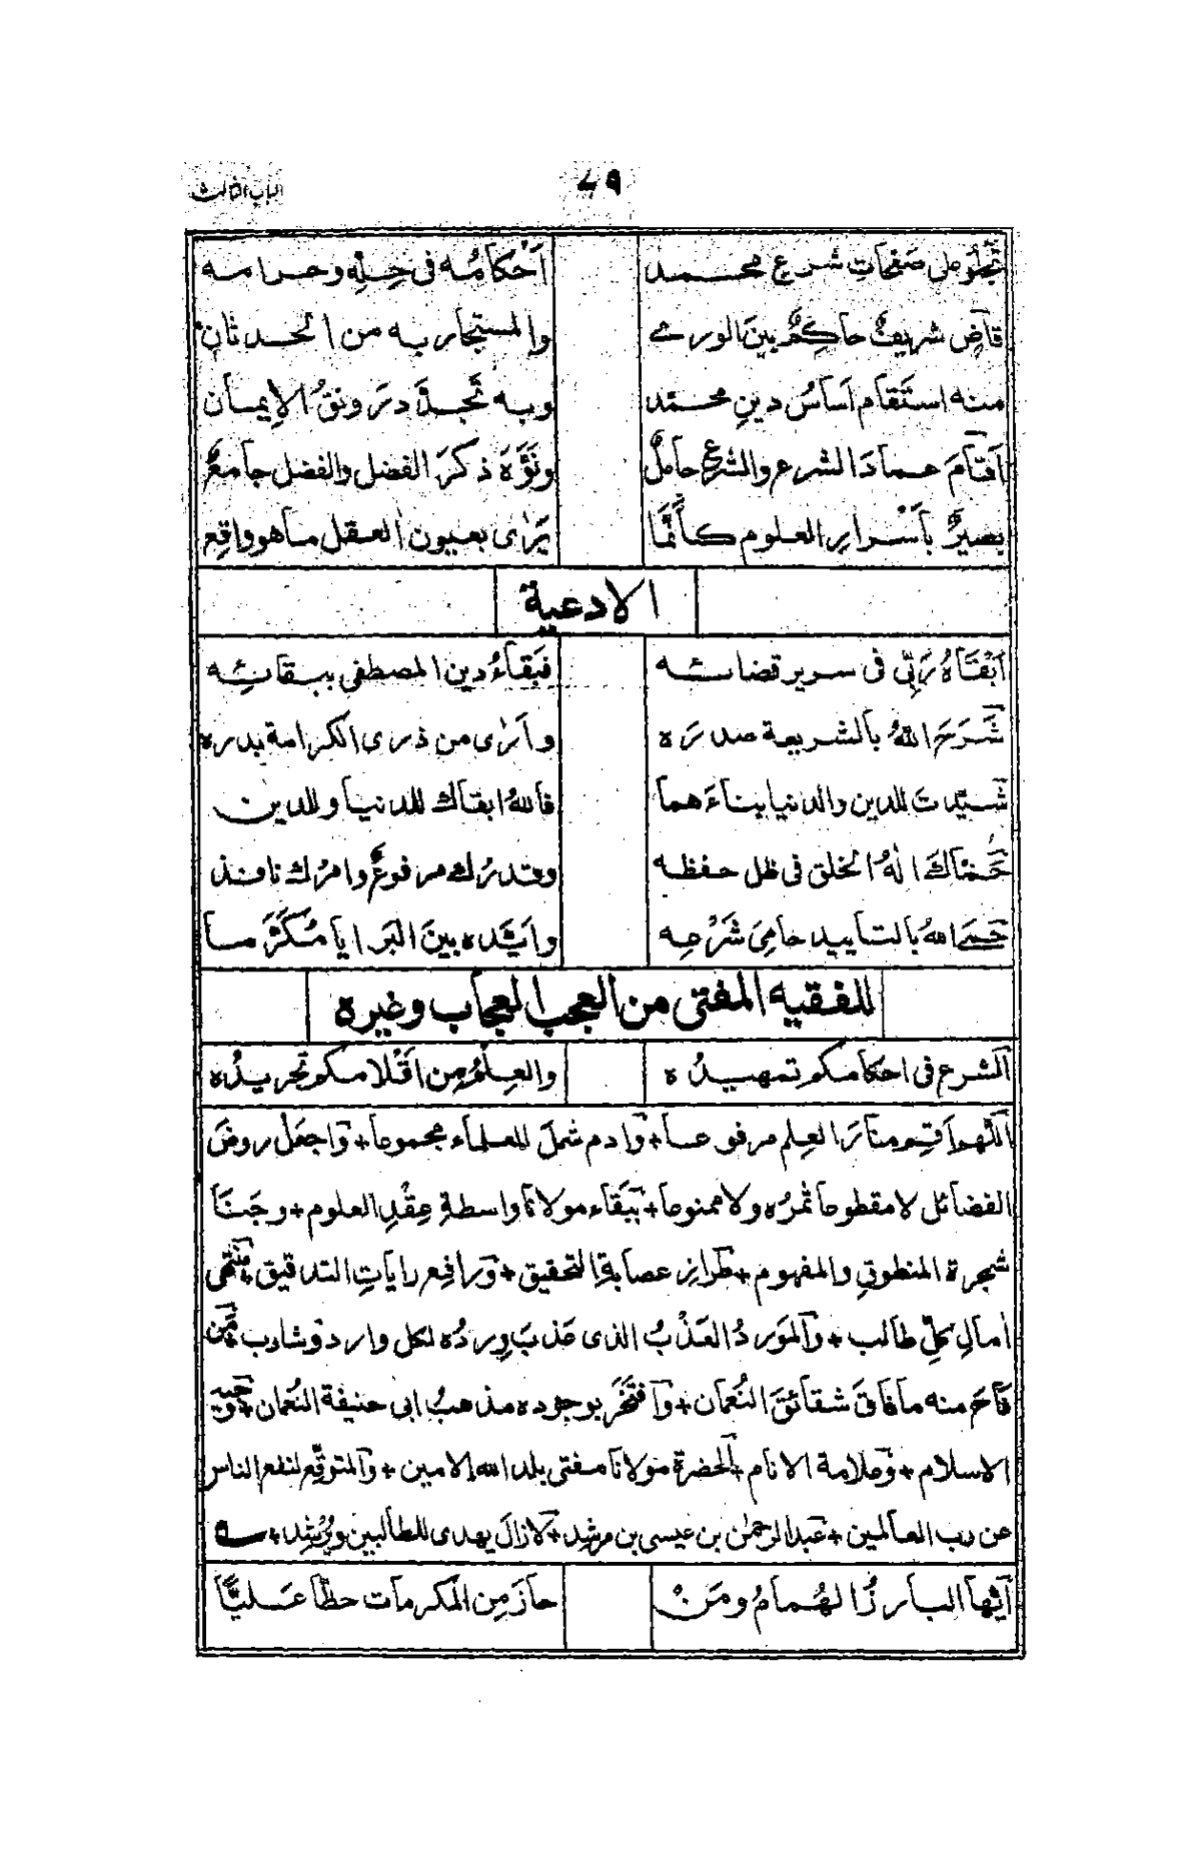 الباب الثالث
٧٩
تَجْلُو على صَفَحاتِ شرعِ محمد اَحْكامُه فى حِلِّهِ وحرامه
قاضٍ شريفٌ حاكِمٌ بينَ الورى والمستجار به من الحدثان
منه استَقام اَساسُ دينِ محمّد وبه تَجدَّدَ رَونقُ الإيمان
اَقامَ عمادَ الشرع والشرعُ حاملٌ ونَوَّهَ ذكرَ الفضل والفضل جامعٌ
بصيرٌ بأَسْرارِ العلوم كأنَّما يَرٰى بعيون العقل ما هو واقِع
الادعية
اَبْقَاهُ رَبِّى فى سرير قضائه فبَقاءُ دين المصطفى ببقائِه
شَرَحَ اللهُ بالشريعة صدرَه وأَرٰى من ذرى الكرامة بدره
شيّدتَ للدين والدنيا بناءَهما فاللهُ ابقاك للدنيا وللدين
حَمَاكَ الٰهُ الخلق فى ظل حفظه وقدرُك مرفوعٌ وامرُك نافذ
حمى اللهُ بالتاييد حامِىَ شَرْعِه وايَّده بينَ البَرايا مُكَرَّما
للفقيه المفتى من العجب العجاب وغيره
اَلشرع فى احكامكم تمهيدُه والعِلمُ مِن اَقْلامكم تجريدُه
اللّٰهم اَقِم منارَ العِلم مرفوعا + وادم شملَ العلماء مجموعا + واجعَلْ روضَ
الفضائل لا مقطوعا ثمرُه ولا ممنوعا + ببَقاء مولانا واسطةِ عِقْدِ العلوم + وجَنَا
شجرة المنطوقِ والمفهوم + طرازِ عصابةِ التحقيق + ورافِع راياتِ التدقيق + منتهى
اٰمالِ كلِّ طالب + والمَوردُ العَذْبُ الذى عَذبَ وِردُه لكل وارد وشارب + مَن
فاحَ منه ما فاقَ شقائقَ النُعمان + وافتَخَر بوجوده مذهبُ ابى حنيفة النُعمان +
الاسلام + وعلامة الانام + الحضرة مولانا مفتى بلد الله الامين + والمتوقّع لنفع الناس
عن رب العالمين + عبد الرحمٰن بن عيسى بن مرشِد + لازالَ يهدى للطالبين ويُرشِد +
اَيُّها البارزُ الهُمامُ ومَنْ حازَ مِن المَكرمات حظًّا عَليًّا